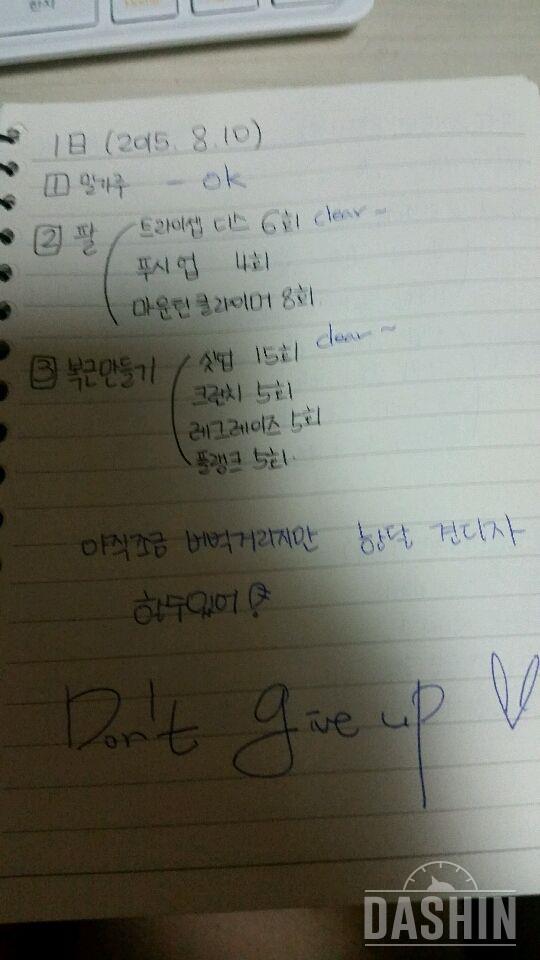 한자
1日 (2015. 8. 10)
1 밀가루 - ok
2 팔 트라이셉 디스 6회 clear~
푸시업 4회
마운틴클라이머 8회
3 복근만들기 싯업 15회 clear~
크런치 5회
레그레이즈 5회
플랭크 5회.
아직조금 버벅거리지만 한달 견디자
할수있어!
Don't give up ♡
DASHIN